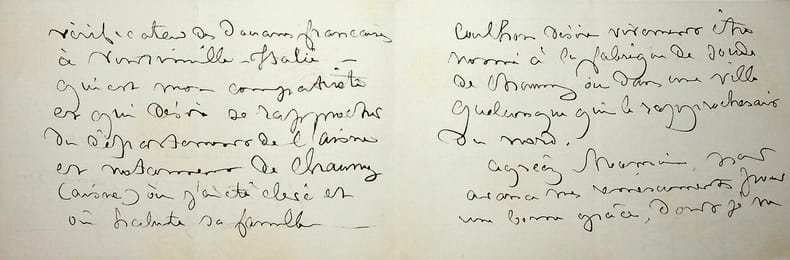 vérificateur des douanes françaises
à Vintimille - Italie -
qui est mon compatriote
et qui désire se rapprocher
du département de l'aisne
et notamment de Chauny
(aisne) où j'ai été élevé et
où habite sa famille
Coulhon désire vivement être
nommé à la fabrique de soude
de Chauny ou dans une ville
quelconque qui le rapprocherait
du nord.
agréez Monsieur,
avance mes remerciements pour
une bonne grâce, dont je